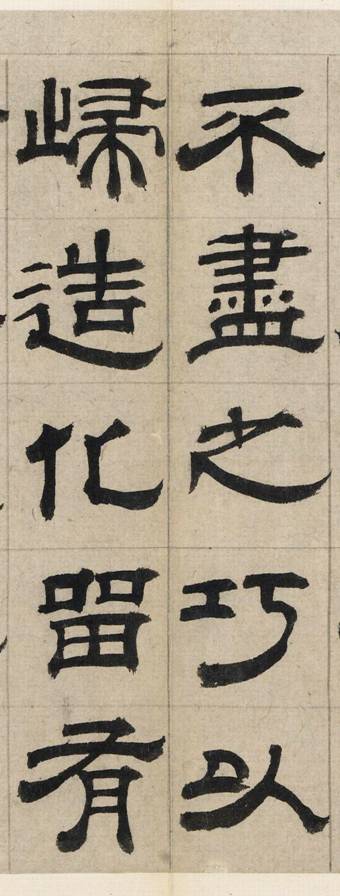 不盡之巧以
歸造化留有